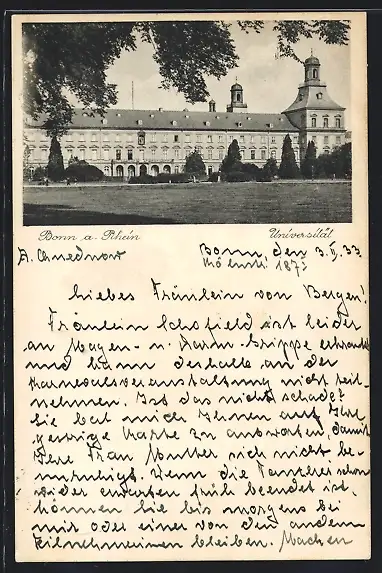 Bonn a. Rhein
Universität
Bonn, den 3. II. 33
187
Liebes Fräulein von Bergen!
Fräulein Schofield ist leider
an Magen- u. Darm-Grippe erkrankt
und kann deshalb an der
Karnevalsveranstaltung nicht teil-
nehmen. Ist das nicht schade?
Sie bat mich Ihnen auf Ihre
gestrige Karte zu antworten, damit
Ihre Frau Mutter sich nicht be-
unruhigt. Wenn die Tanzerei schon
wider erwarten früh beendet ist,
können Sie bis morgens bei
mir oder einer von den andern
Teilnehmerinnen bleiben. Machen